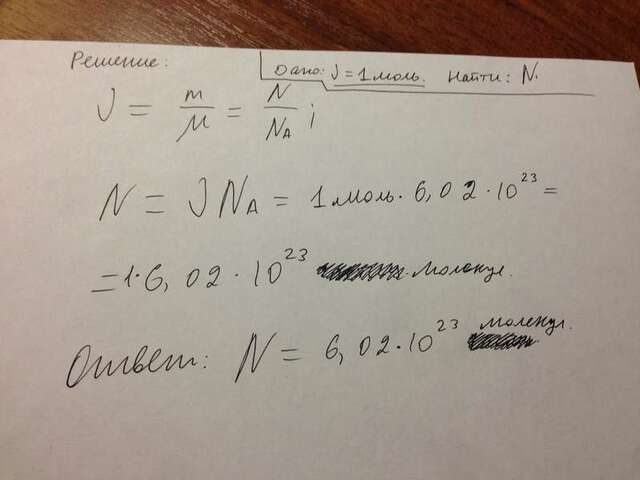 Решение:
Дано: ν = 1 моль. Найти: N.
ν = m/M = N/N_A ;
N = ν N_A = 1 моль · 6,02 · 10^23 =
= 1 · 6,02 · 10^23 молекул.
Ответ: N = 6,02 · 10^23 молекул.